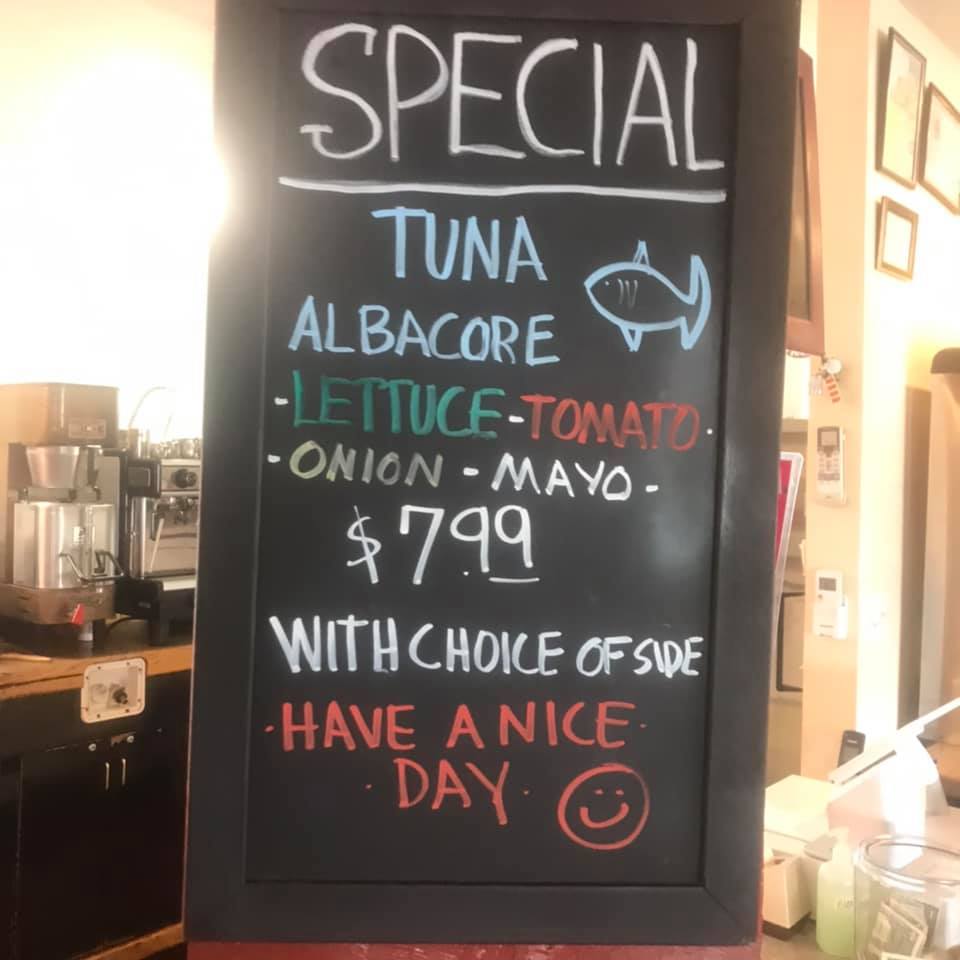 SPECIAL
TUNA
ALBACORE
-LETTUCE-TOMATO.
-ONION - MAYO -
$7.99
WITH CHOICE OF SIDE
·HAVE A NICE·
·DAY·